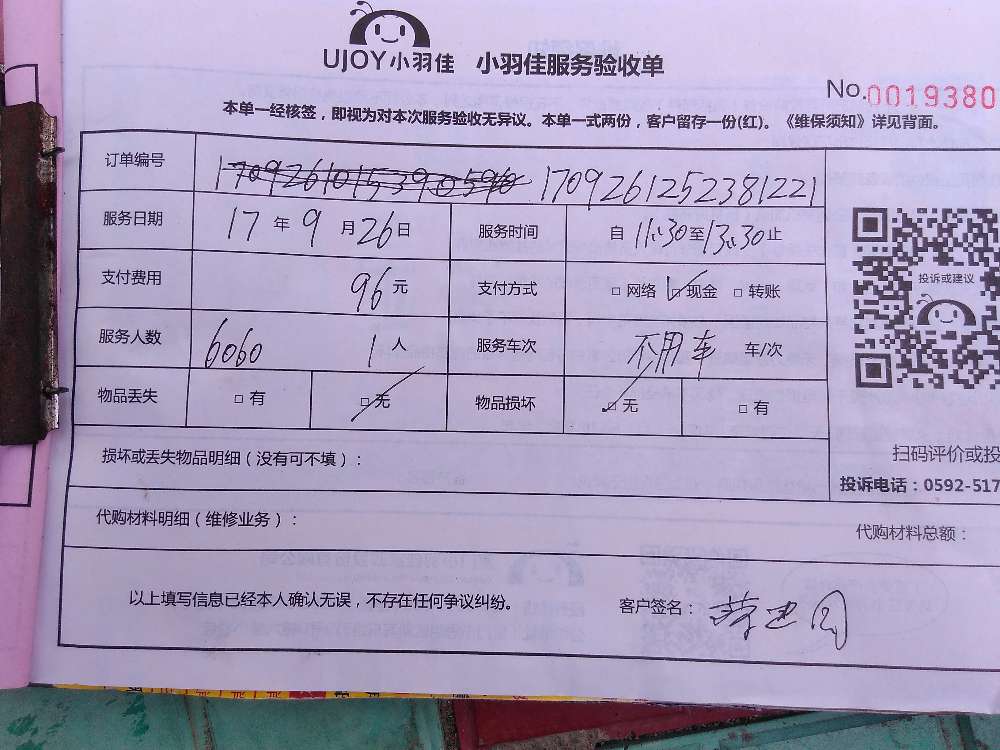 UJOY小羽佳 小羽佳服务验收单
No.0019380
本单一经核签，即视为对本次服务验收无异议。本单一式两份，客户留存一份(红)。《维保须知》详见背面。
订单编号 1709261252381221
服务日期 17年9月26日 服务时间 自11:30至13:30止
支付费用 96元 支付方式 □网络 □现金 □转账
服务人数 6060 1人 服务车次 不用车 车/次
物品丢失 □有 □无 物品损坏 □无 □有
投诉或建议
扫码评价或投
投诉电话：0592-517
损坏或丢失物品明细（没有可不填）：
代购材料明细（维修业务）：
代购材料总额：
以上填写信息已经本人确认无误，不存在任何争议纠纷。
客户签名：